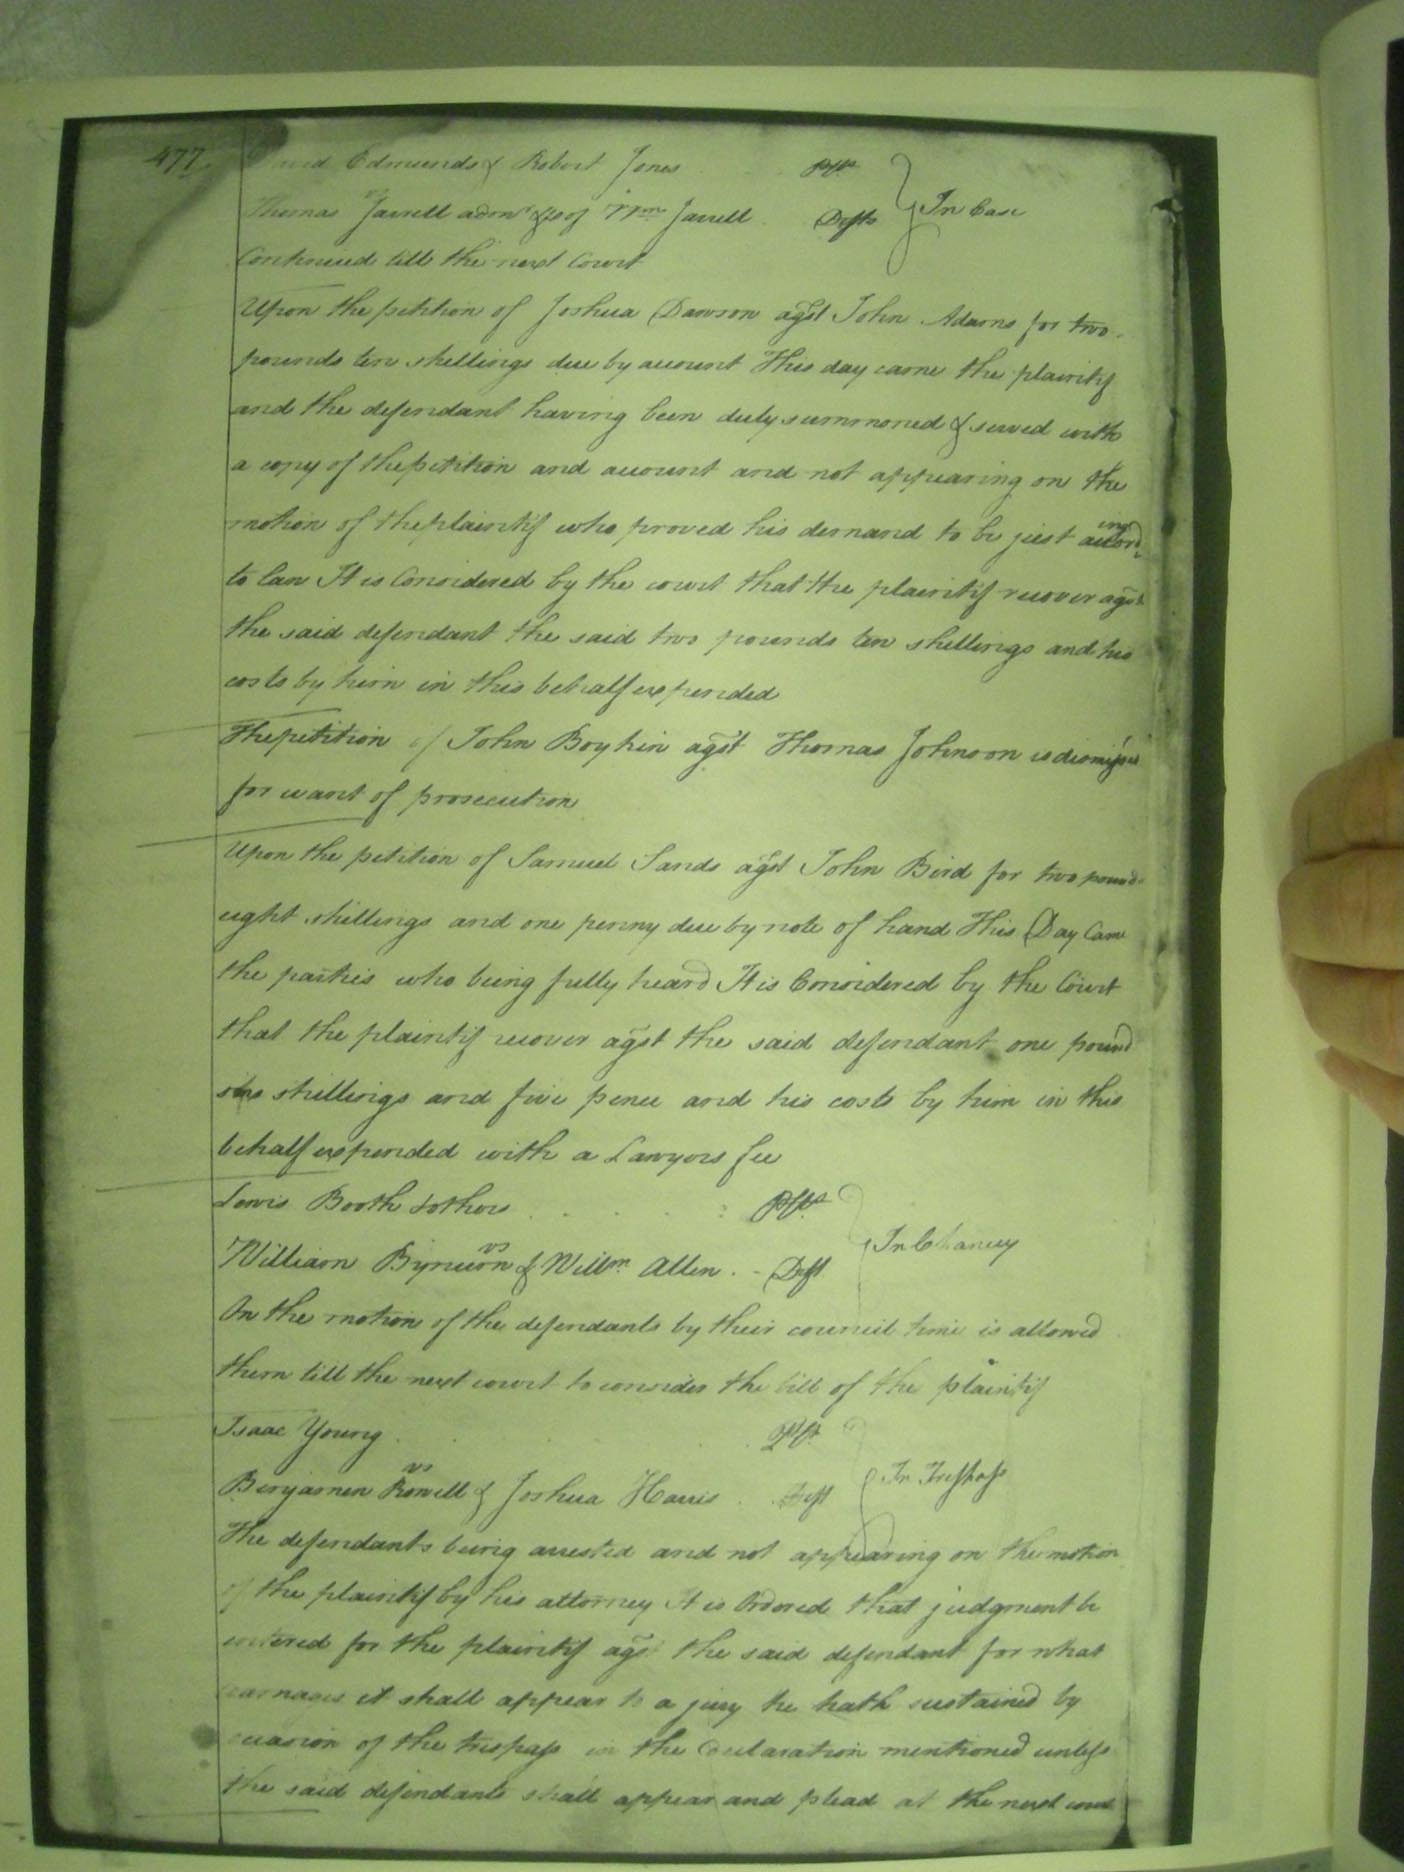 477 Edmunds & Robert Jones Plts
vs } In Case
Thomas Jarrell admr &c of Wm Jarrell Defts
Continued till the next Court
Upon the petition of Joshua Dawson agst John Adams for two
pounds ten shillings due by account This day came the plaintif
and the defendant having been duly summoned & served with
a copy of the petition and account and not appearing on the
motion of the plaintif who proved his demand to be just according
to law It is Considered by the court that the plaintif recover agst
the said defendant the said two pounds ten shillings and his
costs by him in this behalf expended
The petition of John Boykin agst Thomas Johnson is dismissed
for want of prosecution
Upon the petition of Samuel Sands agst John Bird for two pound
eight shillings and one penny due by note of hand This Day Came
the parties who being fully heard It is Considered by the Court
that the plaintif recover agst the said defendant one pound
shillings and five pence and his costs by him in this
behalf expended with a Lawyers fee
Lewis Booth & others Plts
vs } In Chancey
William Bynum & Willm Allen Deft
On the motion of the defendants by their council time is allowed
them till the next court to consider the bill of the plaintif
Isaac Young Plt
vs } In Trespass
Benjamen Rowell & Joshua Harris Deft
The defendants being arrested and not appearing on the motion
of the plaintif by his attorney It is Ordered that judgment be
entered for the plaintif agst the said defendant for what
damages it shall appear to a jury he hath sustained by
occasion of the trespass in the declaration mentioned unless
the said defendants shall appear and plead at the next court